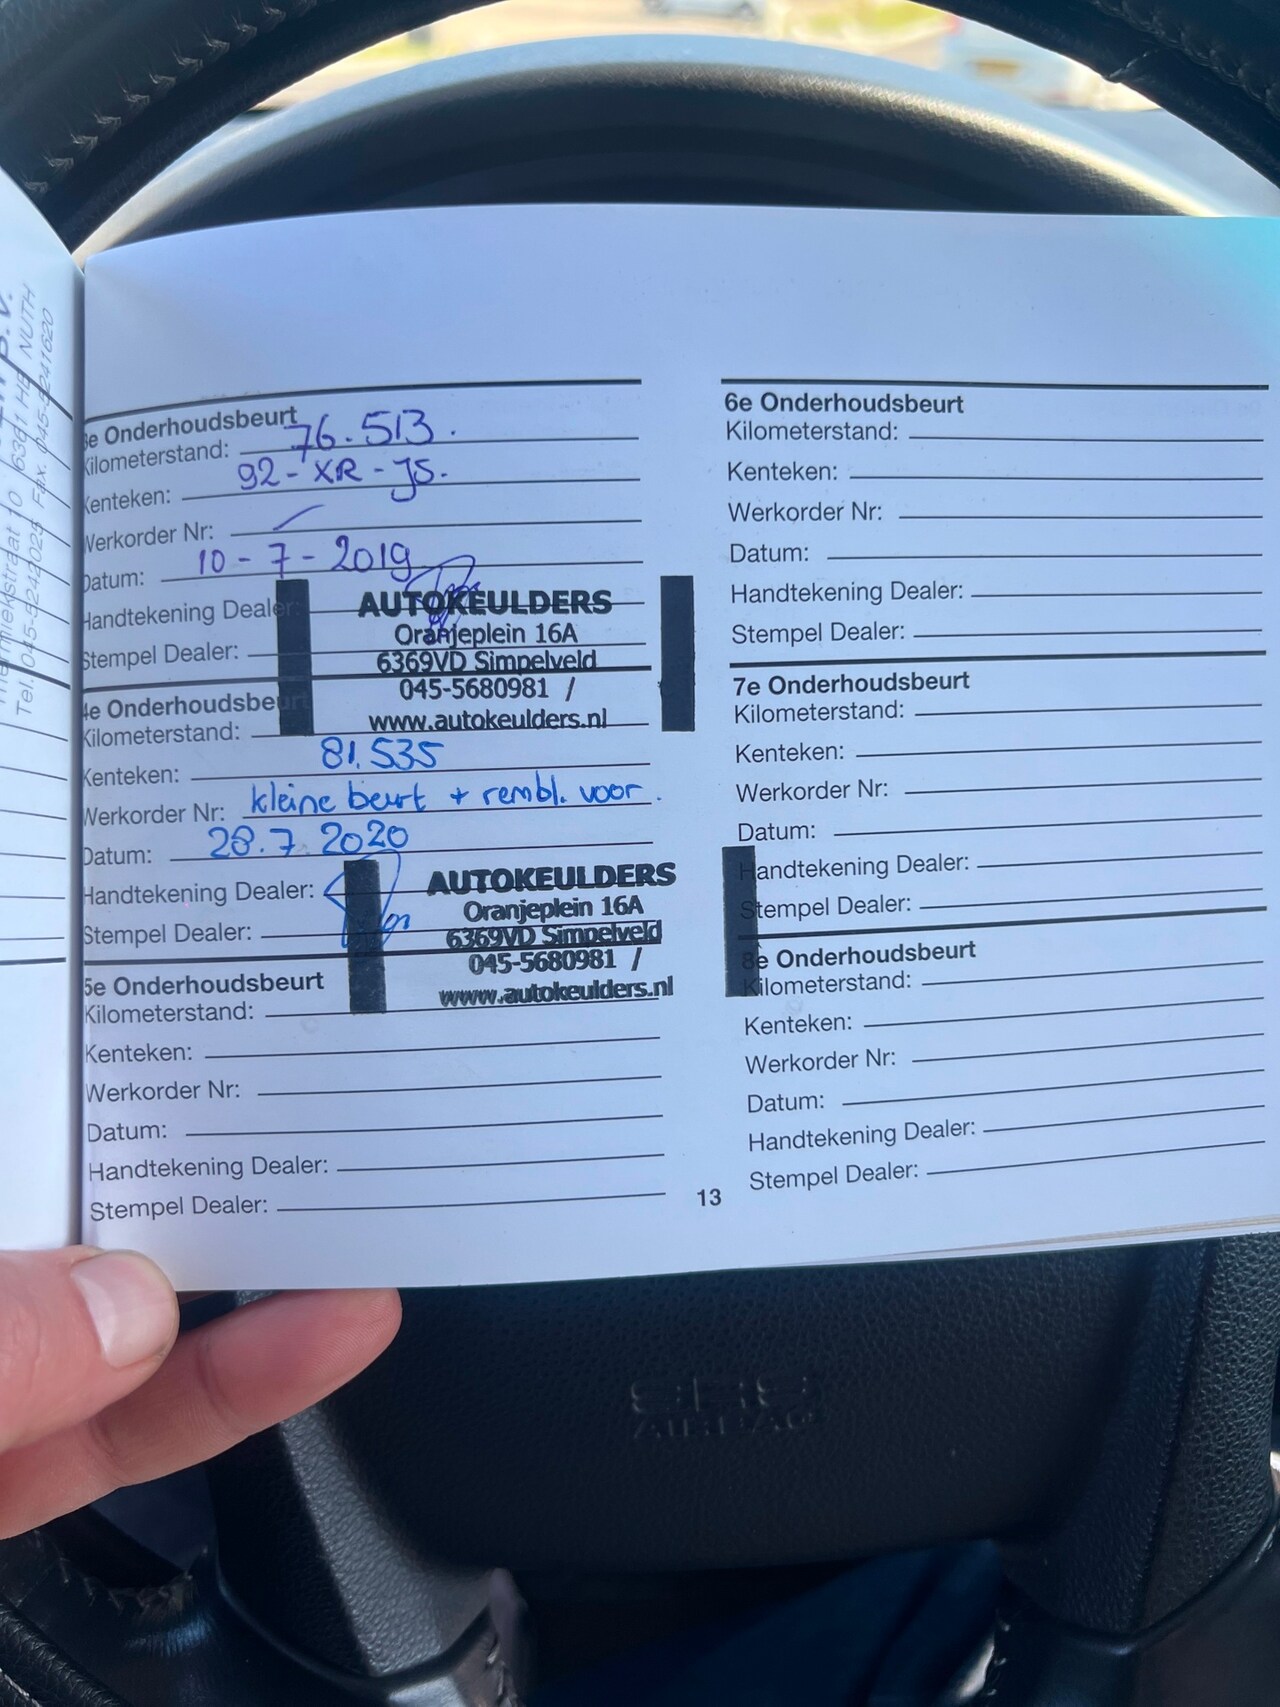 HE NUTH
Tel. 045-5242025 Fax. 045-5241620
3e Onderhoudsbeurt
Kilometerstand: 76.513.
Kenteken: 92-XR-JS.
Werkorder Nr:
Datum: 10-7-2019
Handtekening Dealer:
Stempel Dealer:
AUTOKEULDERS
Oranjeplein 16A
6369VD Simpelveld
045-5680981 /
www.autokeulders.nl
4e Onderhoudsbeurt
Kilometerstand:
81.535
Kenteken:
Werkorder Nr: kleine beurt + rembl. voor.
Datum: 28.7.2020
Handtekening Dealer:
Stempel Dealer:
AUTOKEULDERS
Oranjeplein 16A
6369VD Simpelveld
045-5680981 /
www.autokeulders.nl
5e Onderhoudsbeurt
Kilometerstand:
Kenteken:
Werkorder Nr:
Datum:
Handtekening Dealer:
Stempel Dealer:
6e Onderhoudsbeurt
Kilometerstand:
Kenteken:
Werkorder Nr:
Datum:
Handtekening Dealer:
Stempel Dealer:
7e Onderhoudsbeurt
Kilometerstand:
Kenteken:
Werkorder Nr:
Datum:
Handtekening Dealer:
Stempel Dealer:
8e Onderhoudsbeurt
Kilometerstand:
Kenteken:
Werkorder Nr:
Datum:
Handtekening Dealer:
Stempel Dealer:
13
SRS
AIRBAG